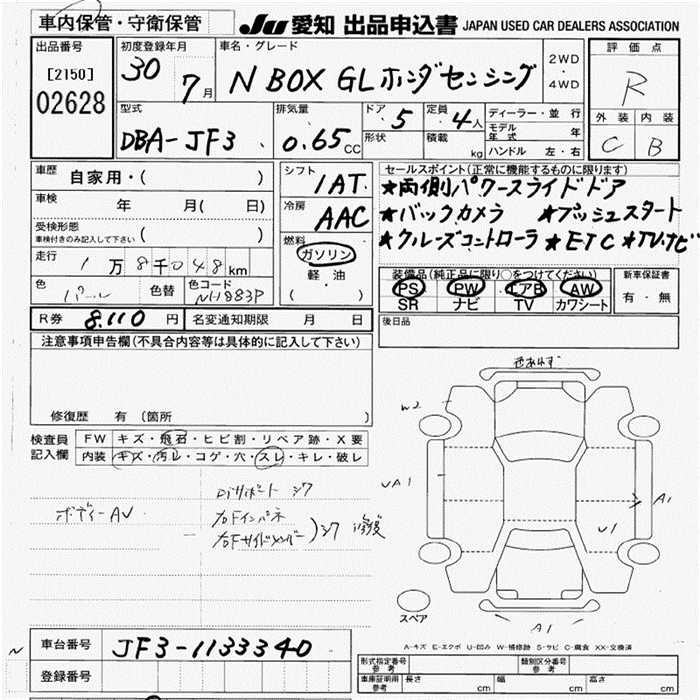 車内保管・守衛保管
JU 愛知 出品申込書 JAPAN USED CAR DEALERS ASSOCIATION
出品番号
[2150]
02628
初度登録年月
30 7月
車名・グレード
N BOX GLホンダセンシング
2WD
・
4WD
評価点
R
外装 内装
C B
型式
DBA-JF3
排気量
0.65cc
ドア 5
形状
定員 4人
積載 kg
ディーラー・並行
モデル年式 年
ハンドル 左・右
車歴 自家用・( )
車検 年 月( 日)
受検形態
車検付きのみ記入して下さい ( )
走行 1万8千048km
色 パール 色替
色コード NH883P
シフト
1AT
冷房
AAC
燃料
ガソリン
軽油
( )
セールスポイント(正常に機能するものに限ります)
★両側パワースライドドア
★バックカメラ ★プッシュスタート
★クルーズコントローラ ★ETC ★TV.ナビ
装備品(純正品に限り○をつけてください)
PS PW エアB AW
SR ナビ TV カワシート
新車保証書
有・無
R券 8,110円 名変通知期限 月 日
後日品
注意事項申告欄(不具合内容等は具体的に記入して下さい)
修復歴 有(箇所 )
検査員
記入欄
FW キズ・飛石・ヒビ割・リペア跡・X要
内装 キズ・汚レ・コゲ・穴・スレ・キレ・破レ
ボディーAU
Diサポート シワ
右Fインパネ
右Fサイドメンバー
)シワ 修復
色あわず
W2
UA1
A1
U1
A1
スペア
A-キズ E-エクボ U-凹み W-補修跡 S-サビ C-腐食 XX-交換済
N
車台番号 JF3-1133340
登録番号
形式指定番号
参考
類別区分番号
参考
車庫証明用
参考
長さ cm 幅 cm 高さ cm